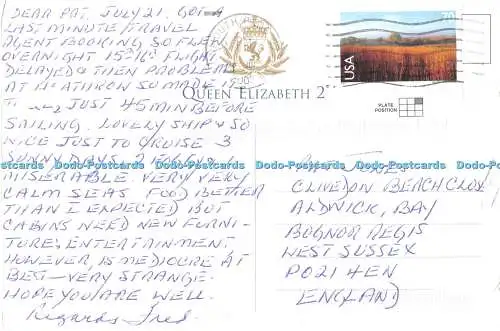 DEAR PAT, JULY 21. GOT A
LAST MINUTE/TRAVEL
AGENT BOOKING SO FLEW
OVERNIGHT 15TH FLIGHT
DELAYED & THEN PROBLEMS
AT HEATHROW SO MADE IT
TO JUST 45 MIN BEFORE
SAILING. LOVELY SHIP & SO
NICE JUST TO CRUISE 3
SUNNY DAYS 2 FOGGY
MISERABLE VERY VERY
CALM SEAS FOOD BETTER
THAN I EXPECTED BUT
CABINS NEED NEW FURNI-
TURE, ENTERTAINMENT
HOWEVER IS MEDIOCRE AT
BEST - VERY STRANGE.
HOPE YOU ARE WELL.
Regards Fred.
QUEEN ELIZABETH 2
70
USA
PLATE
POSITION
JONES
CLIVEDON BEACH CLOSE
ALDWICK, BAY
BOGNOR REGIS
WEST SUSSEX
PO21 4EN
ENGLAND
Dodo-Postcards Dodo-Postcards Dodo-Postcards Dodo-Postcards Dodo-Postcards Dodo-Postcards